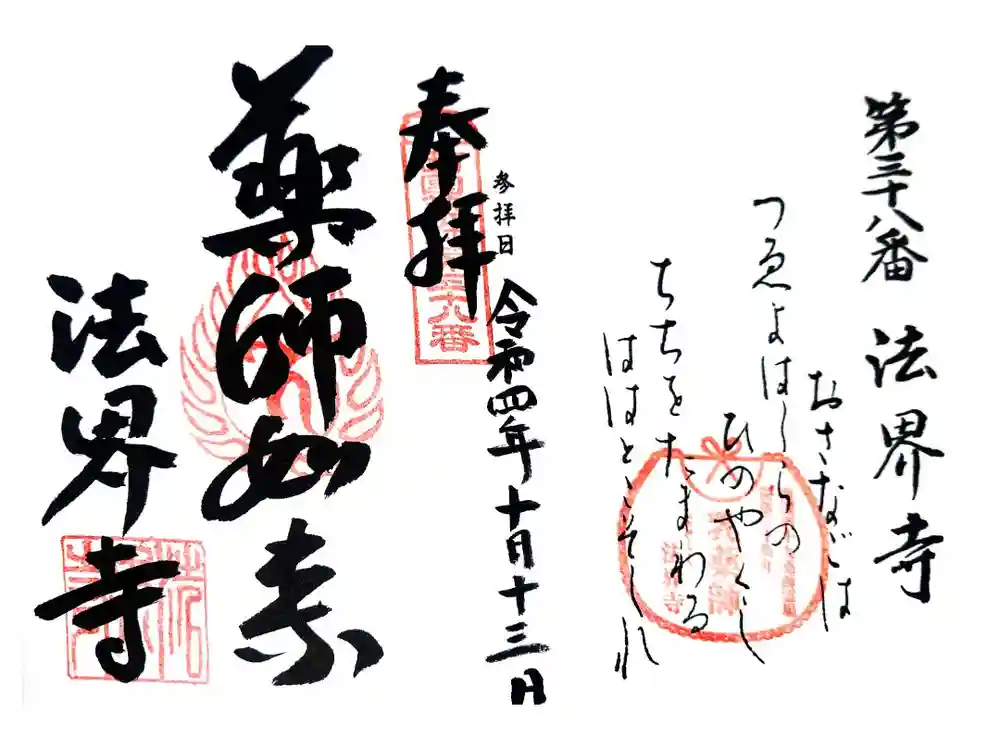 第三十八番 法界寺
おさなごは
つゑよはしらの
ひのやくし
ちちをたまわる
ははとこそしれ
参拝日 令和四年十月十三日
奉拝
薬師如来
法界寺